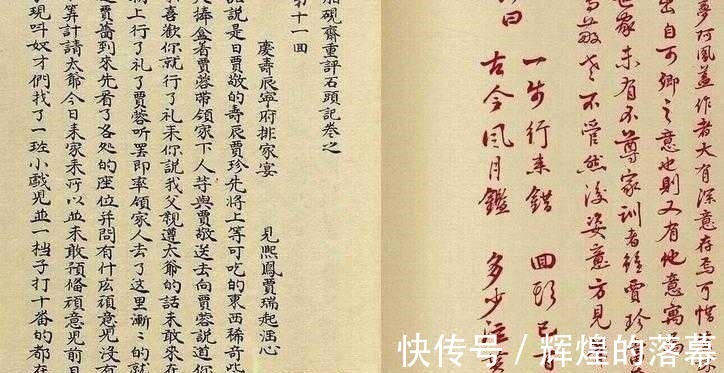 夢阿鳳蓋作者大有深意存焉可惜
出自可卿之意也則又有他意寓
世家未有不尊家訓者雖賈珍
老不管然後姿意方見
曰
一步行來錯 回頭已百
古今風月鑑 多少泣
硯齋重評石頭記卷之
第十一回
慶壽辰寧府排家宴 見熙鳳賈瑞起淫心
話說是日賈敬的壽辰賈珍先將上等可吃的東西稀奇些
大捧盒着賈蓉帶領家下人等與賈敬送去向賈蓉說道你
喜歡你就行了礼來你說我父親遵太爺的話未敢來在
上行了礼了賈蓉听罷即率領家人去了這里漸〻的就
賈薔到來先看了各処的座位并問有什庅頑意児沒有
算計請太爺今日來家來所以並未敢預俻頑意児前日
現叫奴才們找了一班小戲児並一档子打十番的都在
快传号/辉煌的落幕